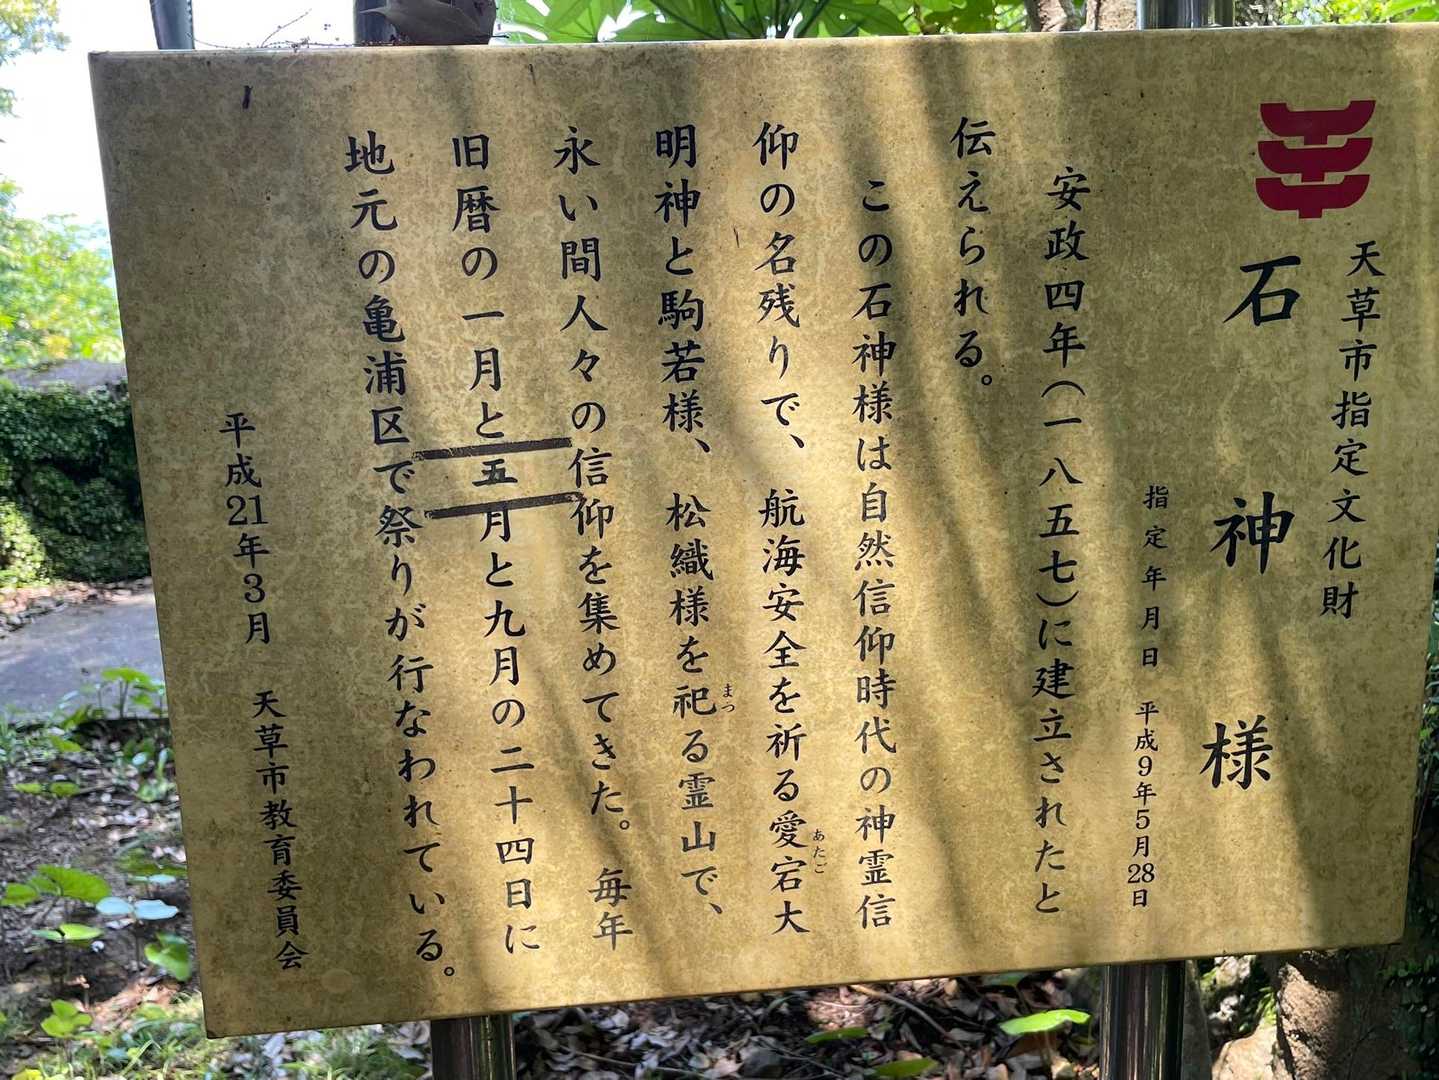 天草市指定文化財
石神様
指定年月日 平成9年5月28日
安政四年(一八五七)に建立されたと
伝えられる。
この石神様は自然信仰時代の神霊信
仰の名残りで、航海安全を祈る愛宕大
あたご
明神と駒若様、松織様を祀る霊山で、
まつ
永い間人々の信仰を集めてきた。毎年
旧暦の一月と五月と九月の二十四日に
地元の亀浦区で祭りが行なわれている。
平成21年3月 天草市教育委員会